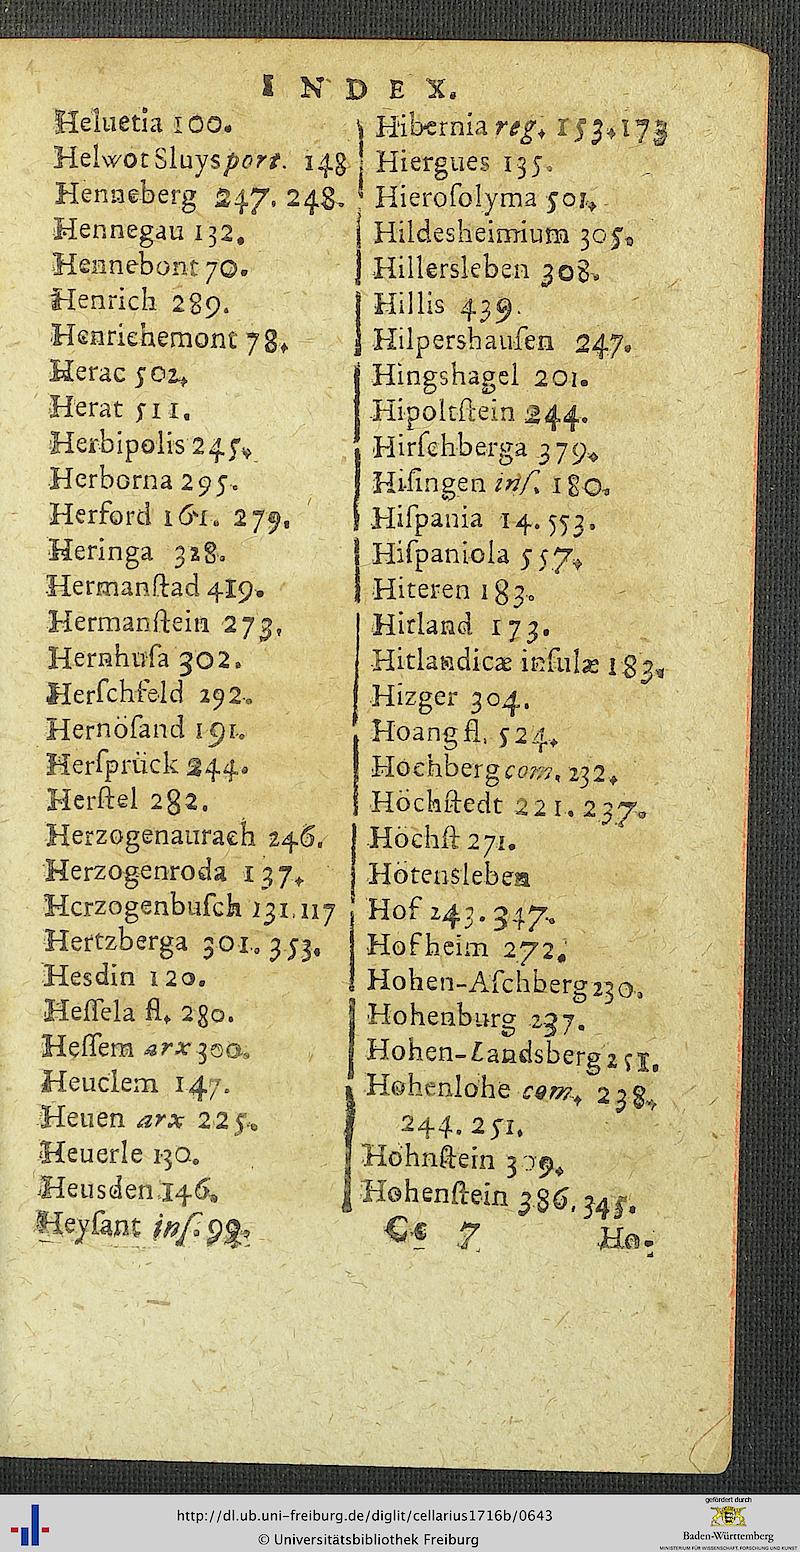 INDEX.
Heluetia 100.
Helwot Sluys port. 148
Henneberg 247. 248.
Hennegau 132.
Hennebont 70.
Henrich 289.
Henrichemont 78.
Herac 502.
Herat 511.
Herbipolis 245.
Herborna 295.
Herford 161. 279.
Heringa 328.
Hermanſtad 419.
Hermanſtein 273.
Hernhuſa 302.
Herſchfeld 292.
Hernöſand 191.
Herſprück 244.
Herſtel 282.
Herzogenaurach 246.
Herzogenroda 137.
Herzogenbuſch 131. 117
Hertzberga 301. 353.
Hesdin 120.
Heſſela fl. 280.
Heſſem arx 300.
Heuclem 147.
Heuen arx 225.
Heuerle 130.
Heusden 146.
Heyſant inſ. 99.
Hibernia reg. 153. 173
Hiergues 135.
Hieroſolyma 501.
Hildesheimium 305.
Hillersleben 308.
Hillis 439.
Hilpershauſen 247.
Hingshagel 201.
Hipoltſtein 244.
Hirſchberga 379.
Hiſingen inſ. 180.
Hiſpania 14. 553.
Hiſpaniola 557.
Hiteren 183.
Hitland 173.
Hitlandicæ inſulæ 183.
Hizger 304.
Hoang fl. 524.
Hochberg com. 232.
Höchſtedt 221. 237.
Höchſt 271.
Hötensleben
Hof 243. 347.
Hofheim 272.
Hohen-Aſchberg 230.
Hohenburg 237.
Hohen-Landsberg 251.
Hohenlohe com. 238.
244. 251.
Hohnſtein 309.
Hohenſtein 386. 345.
Cc 7 Ho-
http://dl.ub.uni-freiburg.de/diglit/cellarius1716b/0643
© Universitätsbibliothek Freiburg
gefördert durch
Baden-Württemberg
MINISTERIUM FÜR WISSENSCHAFT, FORSCHUNG UND KUNST